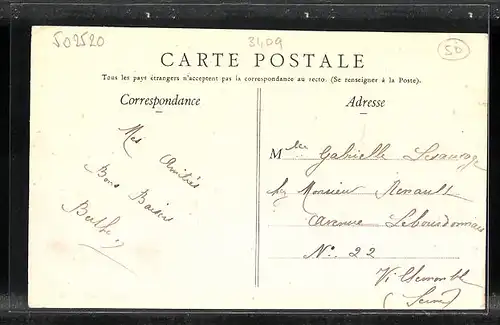 502520
3409
50
CARTE POSTALE
Tous les pays étrangers n'acceptent pas la correspondance au recto. (Se renseigner à la Poste).
Correspondance
Adresse
Mes Amitiés
Bons Baisers
Berthe
Mlle Gabrielle Lesauvage
chez Monsieur Renault
Avenue Lebourdonnais
No. 22
Villemomble
(Seine)